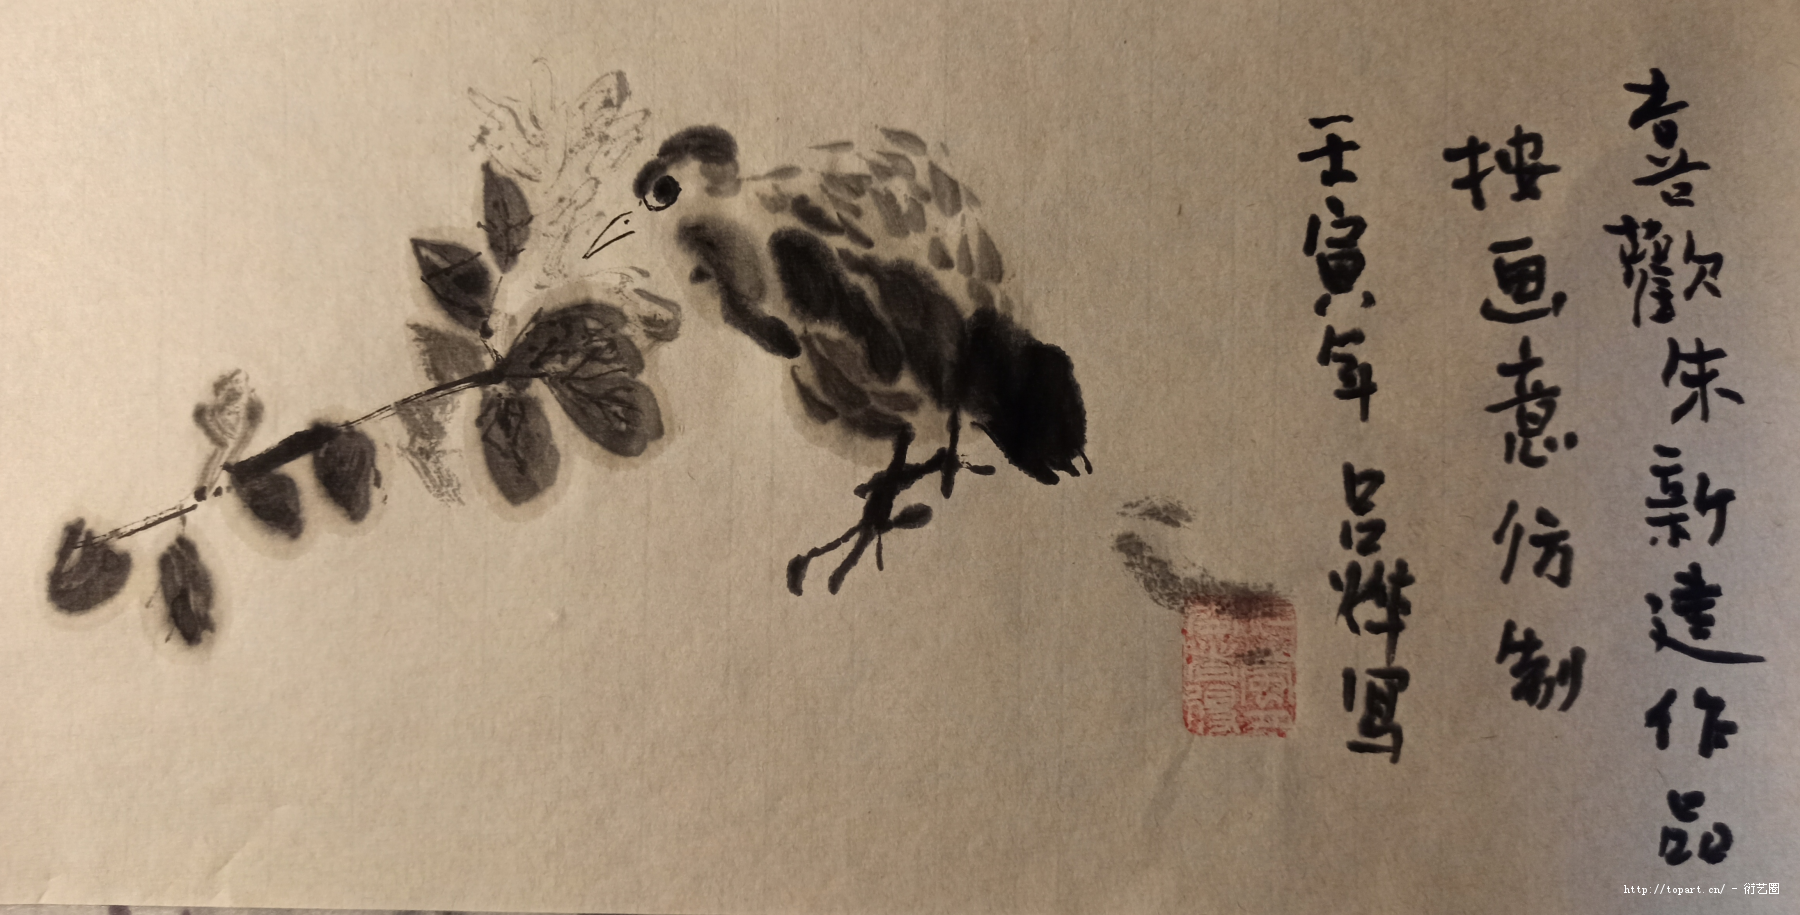 喜歡朱新建作品
按画意仿制
壬寅年 吕燁写
http://topart.cn/ - 衍艺圈